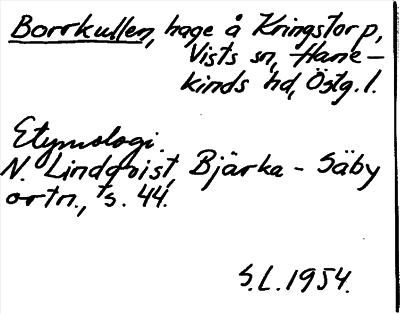 Borrkullen, hage å Kringstorp,
Vists sn, Hane-
kinds hd, Östg.l.
Etymologi.
N. Lindqvist, Bjärka - Säby
ortn., s. 44.
S.L. 1954.